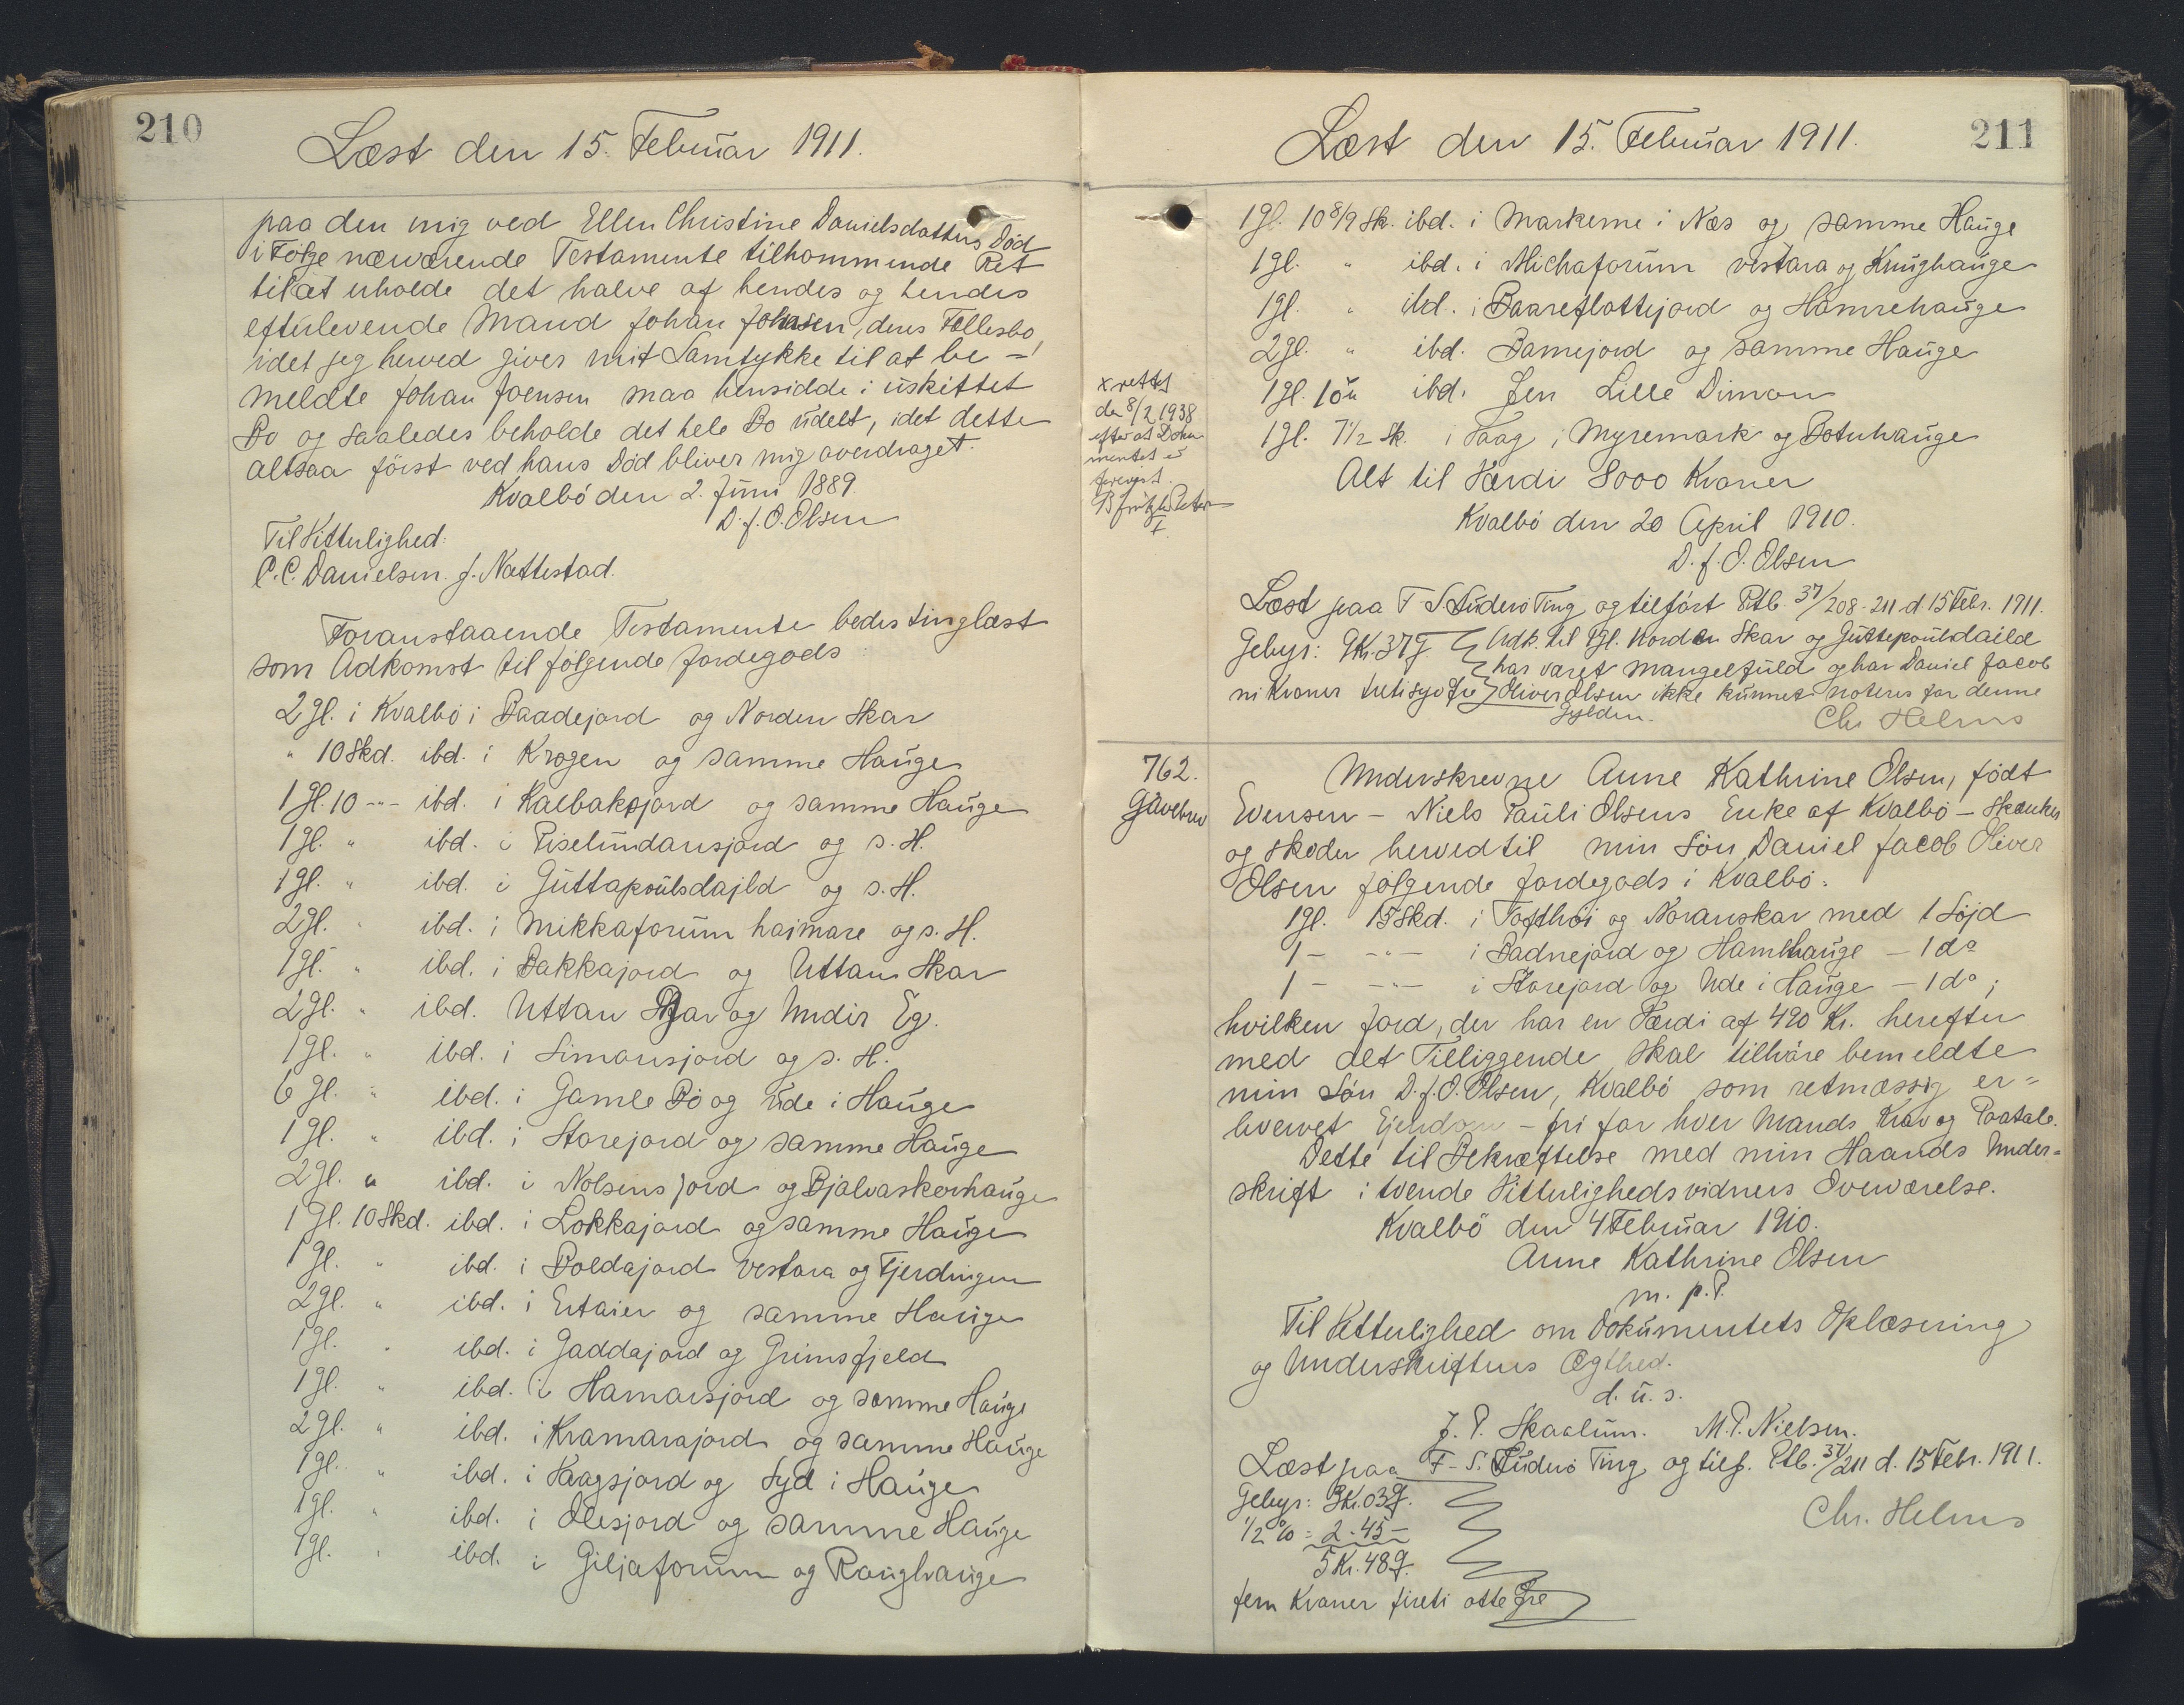 210
Læst den 15. Februar 1911.
paa den mig ved Ellen Christine Danielsdatters Død
i Følge nærværende Testamente tilkommende Ret
til at erholde det halve af hendes og hendes
efterlevende Mand Johan Johnsen, deres Fællesbo,
idet jeg herved giver mit Samtykke til at be-
meldte Johan Joensen maa hensidde i uskiftet
Bo og saaledes beholde det hele Bo udelt, idet dette
altsaa först ved hans Død bliver mig overdraget.
Kvalbö den 2. Juni 1889.
D. J. O. Olsen
Til Vitterlighed:
P. C. Danielsen. J. Nattestad.
Foranstaaende Testamente bedes tinglæst
som Adkomst til følgende Jordegods:
2 Gl. i Kvalbö i Baadejord og Norden Skar
" 10 Skd. ibd. i Krogen og samme Hauge
1 Gl. 10 -"- ibd. i Kalbaksjord og samme Hauge
1 Gl. " ibd. i Piselundarsjord og s. H.
1 Gl. " ibd. i Guttapoulsdajld og s. H.
2 Gl. " ibd. i Mikkaforum haimare og s. H.
1 Gl. " ibd. i Bakkajord og Uttan Skar
2 Gl. " ibd. Uttan Skar og Undir Eg.
1 Gl. " ibd. i Simonsjord og s. H.
6 Gl. " ibd. i Gamle Bö og ude i Hauge
1 Gl. " ibd. i Storejord og samme Hauge
2 Gl. " ibd. i Nolsens jord og Bjalvaskorhauge
1 Gl. 10 Skd. ibd. i Lokkajord og samme Hauge
1 Gl. " ibd. i Boldajord vestara og Fjerdingen
2 Gl. " ibd. i Ertaier og samme Hauge
1 Gl. " ibd. i Gaddajord og Grimsfjeld
1 Gl. " ibd. i Hamarsjord og samme Hauge
2 Gl. " ibd. i Kramarajord og samme Hauge
1 Gl. " ibd. i Haagsjord og Syd i Hauge
1 Gl. " ibd. i Olesjord og samme Hauge
1 Gl. " ibd. i Giljaforum og Raughauge
Læst den 15. Februar 1911.
211
1 Gl. 10 8/9 Sk. ibd. i Markerne i Næs og samme Hauge
1 Gl. " ibd. i Michaforum vestara og Krughauge
1 Gl. " ibd. i Baareflottejord og Hamrehauge
2 Gl. " ibd. Bamejord og samme Hauge
1 Gl. ibd. Jen Lille Dimon
1 Gl. 7 1/2 Sk. i Vaag i Myremark og Botnhauge
x rettet
den 8/2 1938
efter at Doku
mentet er
forevist.
Alt til Værdi 8000 Kroner
Kvalbö den 20 April 1910.
D. J. O. Olsen
Læst paa F-S. Suderö Ting og tilfört Ptb. 37/208-211 d 15 Febr. 1911.
Gebyr: 9 Kr. 37 Ø. Adk. til 1 Gl. Norden Skar og Guttepoulsdaild
har været mangelfuld og har Daniel Jacob
ni Kroner tretisyv Øre Oliver Olsen ikke kunnet noteres for denne
Gylden.
Chr. Helms
762.
Gavebrev
Underskrevne Anne Kathrine Olsen, født
Evensen - Niels Pauli Olsens Enke af Kvalbö - skænker
og skøder herved til min Sön Daniel Jacob Oliver
Olsen følgende Jordegods i Kvalbö:
1 Gl. 15 Skd. i Tofthöi og Noranskar med 1 Söjd
1 - -"- i Badnejord og Hamhauge - 1 do
1 - -"- i Storejord og Ude i Hauge - 1 do;
hvilken Jord, der har en Værdi af 490 Kr. herefter
med alt Tilliggende skal tilhöre bemeldte
min Sön D. J. O. Olsen, Kvalbö som retmæssig er=
hvervet Ejendom - fri for hver Mands Krav og Paatale.
Dette til Bekræftelse med min Haands Under=
skrift i tvende Vitterlighedsvidners Overværelse.
Kvalbö den 4 Februar 1910.
Anne Kathrine Olsen
m. p. P.
Til Vitterlighed om Dokumentets Oplæsning
og Underskriftens Ægthed.
d. u. s.
J. P. Skaalum. M. P. Nielsen.
Læst paa F-S. Suderö Ting og tilf. Ptb. 37/211 d. 15 Febr. 1911.
Gebyr: 3 Kr. 03 Ø.
1/2 % = 2 - 45 -
5 Kr. 48 Ø.
fem Kroner fireti otte Øre
Chr. Helms